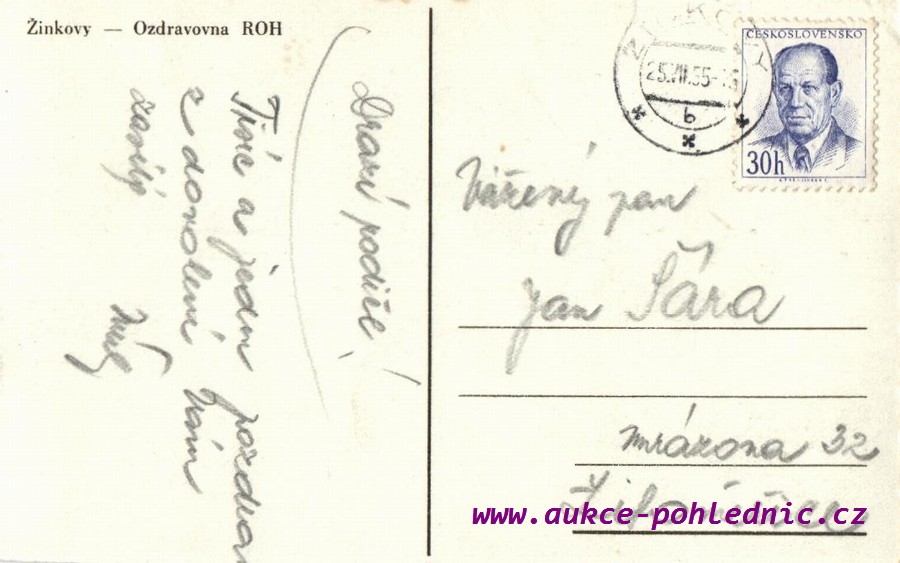 Žinkovy — Ozdravovna ROH
Drazí rodiče!
Tisíc a jeden pozdrav
z dovolení Vám
zasílá
ČESKOSLOVENSKO
30h
25.VII.55
b
Vážený pan
Jan Šára
Mrázova 32
www.aukce-pohlednic.cz